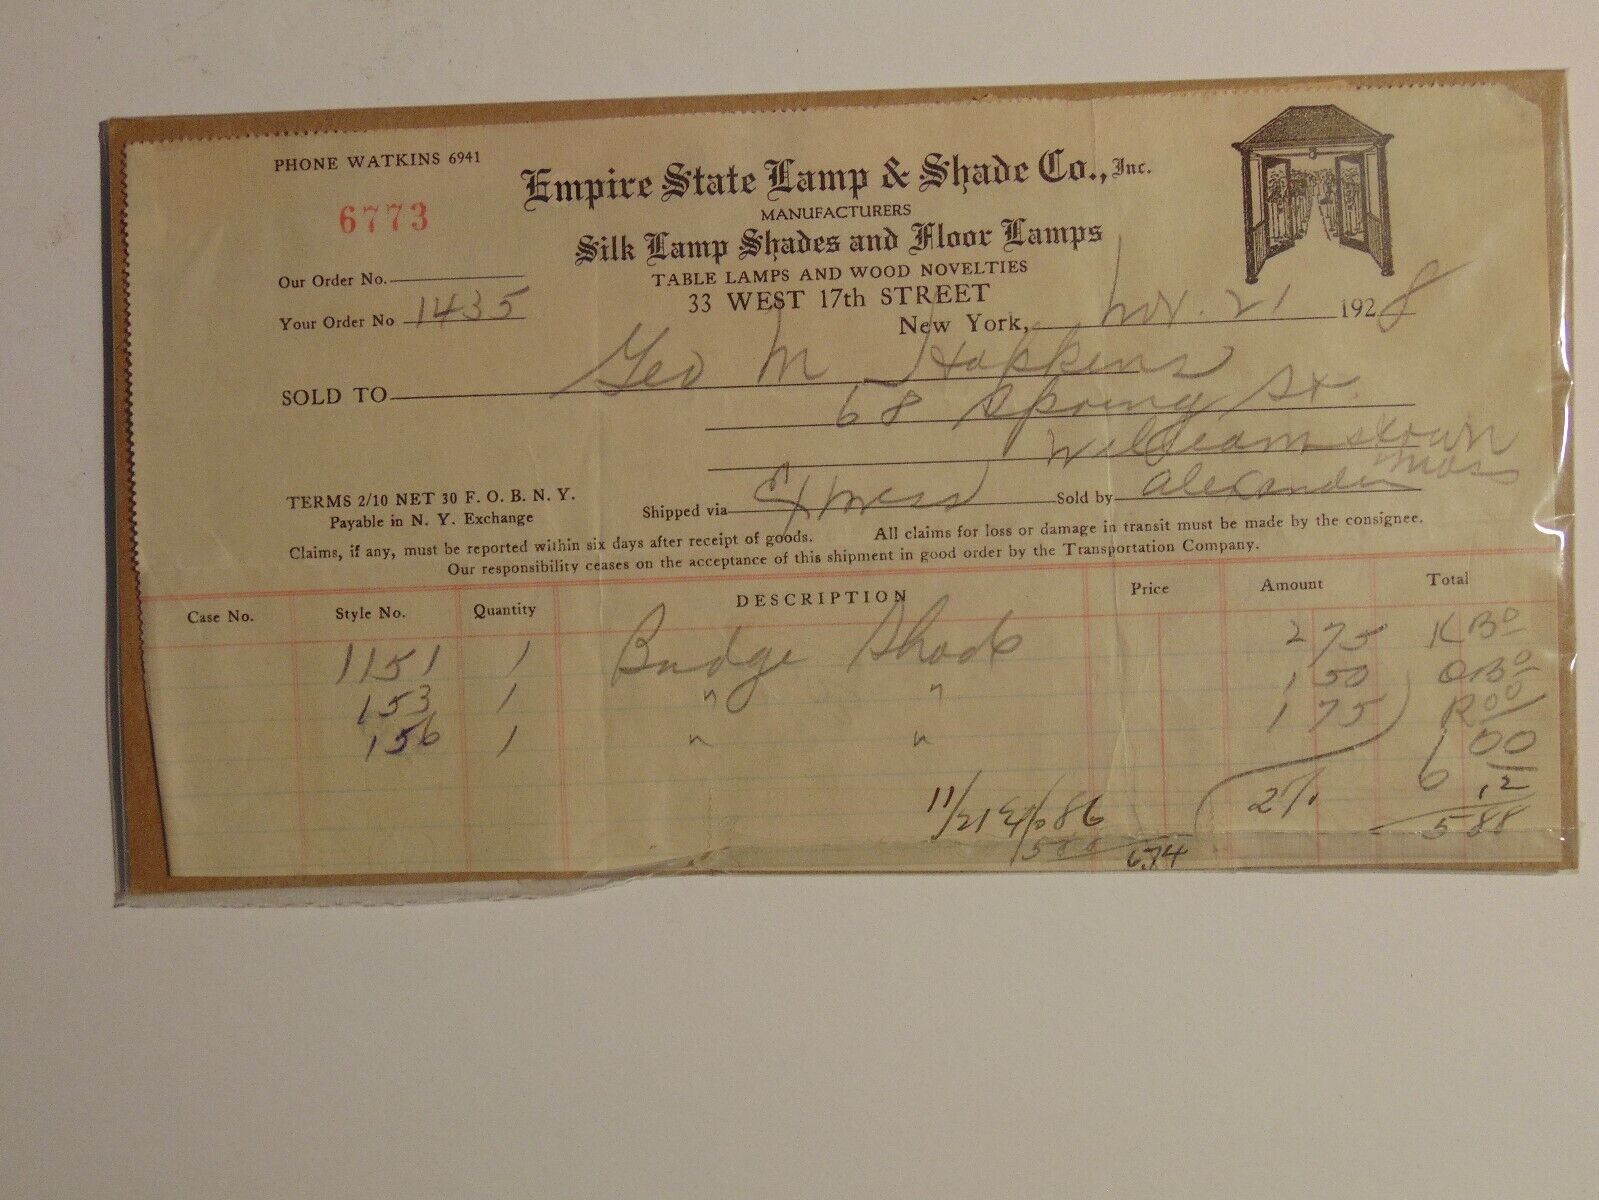 PHONE WATKINS 6941
6773
Empire State Lamp & Shade Co., Inc.
MANUFACTURERS
Silk Lamp Shades and Floor Lamps
TABLE LAMPS AND WOOD NOVELTIES
33 WEST 17th STREET
Our Order No.
Your Order No 1435
New York, Nov. 21 1928
SOLD TO Geo M Hopkins
68 Spring St.
Williamstown
Mass
TERMS 2/10 NET 30 F. O. B. N. Y.
Payable in N. Y. Exchange
Shipped via Express Sold by Alexander
Claims, if any, must be reported within six days after receipt of goods. All claims for loss or damage in transit must be made by the consignee.
Our responsibility ceases on the acceptance of this shipment in good order by the Transportation Company.
Case No. Style No. Quantity DESCRIPTION Price Amount Total
1151 1 Bridge Shade 2 75
153 1 " " 1 50
156 1 " " 1 75
6 00
2% .12
5 88
11/21 86
588
6.74